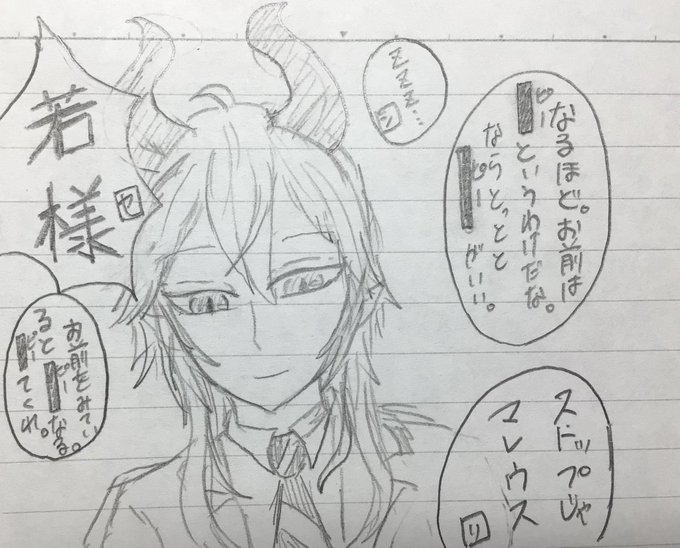 なるほど。お前は
ピーというわけだな。
ならとっとと
ピーがいい。
ZZZ…
シ
若様
セ
お前をみてい
るとピーなる。
ピーてくれ。
ストップじゃ
マレウス
リ